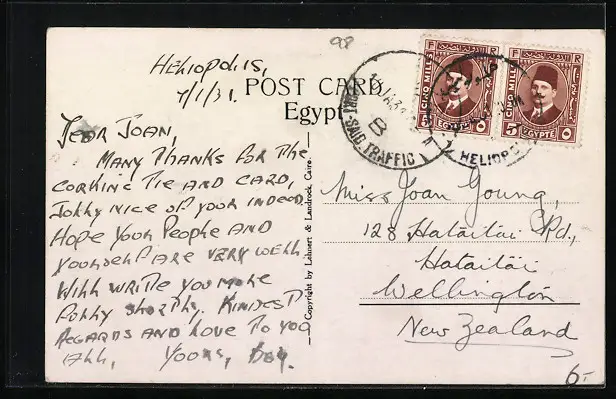 98
Heliopolis,
7/1/31.
POST CARD
Egypt
Dear Joan,
Many thanks for the
corking tie and card,
jolly nice of you indeed.
Hope your people and
yourself are very well
Will write you more
fully shortly. Kindest
regards and love to you
all, Yours,
Copyright by Lehnert & Landrock, Cairo.
Miss Joan Young,
128 Hataitai Rd.,
Hataitai
Wellington
New Zealand
CINQ MILLES
5 EGYPTE ٥
CINQ MILLES
5 EGYPTE ٥
PORT-SAID TRAFFIC
HELIOPOLIS
6-